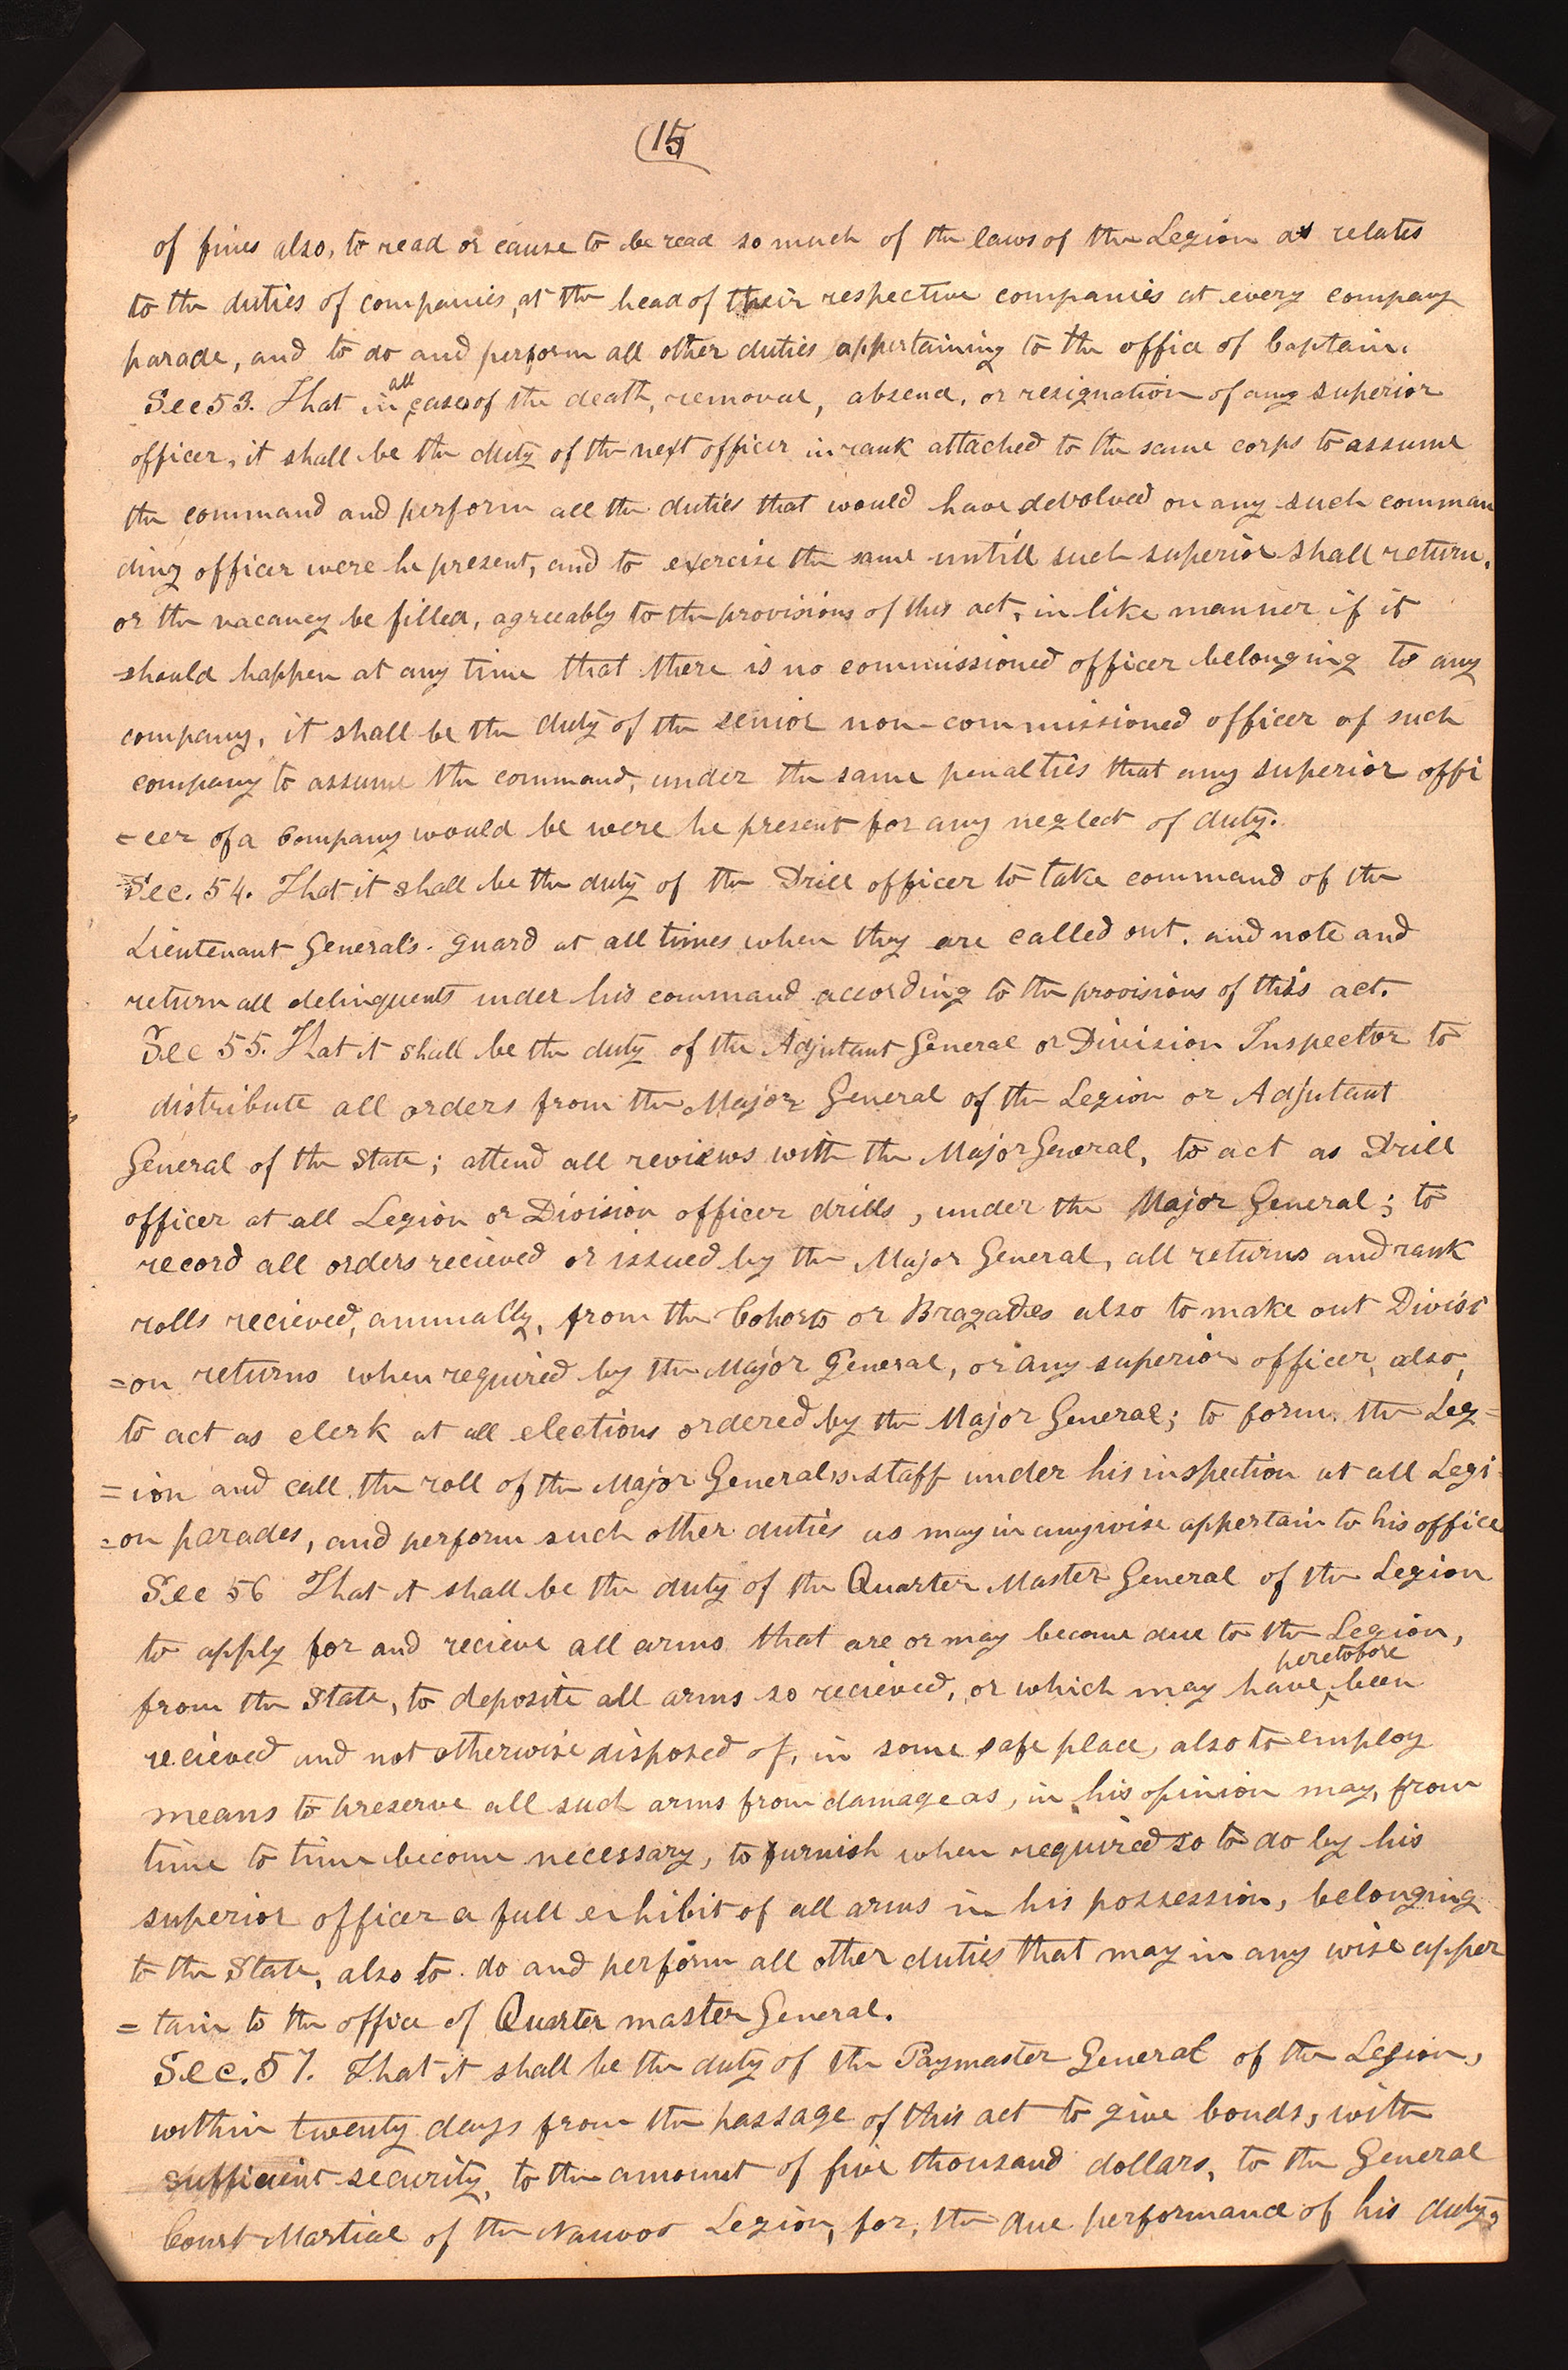 (15
of fines also, to read or cause to be read so much of the laws of the Legion as relates
to the duties of companies, at the head of their respective companies at every company
parade, and to do and perform all other duties appertaining to the office of Captain.
Sec 53. That in all cases of the death, removal, absence, or resignation of any superior
officer, it shall be the duty of the next officer in rank attached to the same corps to assume
the command and perform all the duties that would have devolved on any such comman
ding officer were he present, and to exercise the same untill such superior shall return,
or the vacancy be filled, agreeably to the provisions of this act, in like manner if it
should happen at any time that there is no commissioned officer belonging to any
company, it shall be the duty of the senior non-commissioned officer of such
company to assume the command, under the same penalties that any superior offi
=cer of a Company would be were he present for any neglect of duty.
Sec. 54. That it shall be the duty of the Drill officer to take command of the
Lieutenant General's guard at all times when they are called out, and note and
return all delinquents under his command according to the provisions of this act.
Sec 55. That it shall be the duty of the Adjutant General or Division Inspector to
distribute all orders from the Major General of the Legion or Adjutant
General of the State; attend all reviews with the Major General, to act as Drill
officer at all Legion or Division officer drills, under the Major General; to
record all orders recieved or issued by the Major General, all returns and rank
rolls recieved, annually, from the Cohorts or Bragades also to make out Divisi
=on returns when required by the Major General, or any superior officer, also,
to act as clerk at all elections ordered by the Major General; to form the Leg=
=ion and call the roll of the Major General,s staff under his inspection at all Legi
=on parades, and perform such other duties as may in anywise appertain to his office
Sec 56 That it shall be the duty of the Quarter Master General of the Legion
to apply for and recieve all arms that are or may become due to the Legion,
from the State, to deposite all arms so recieved, or which may have heretofore been
recieved and not otherwise disposed of, in some safe place, also to employ
means to preserve all such arms from damage as, in his opinion may, from
time to time become necessary, to furnish when required so to do by his
superior officer a full exhibit of all arms in his possession, belonging
to the State, also to do and perform all other duties that may in any wise apper
=tain to the office of Quarter master General.
Sec. 57. That it shall be the duty of the Paymaster General of the Legion,
within twenty days from the passage of this act to give bonds, with
sufficient security, to the amount of five thousand dollars, to the General
Court Martial of the Nauvoo Legion, for, the due performance of his duty,